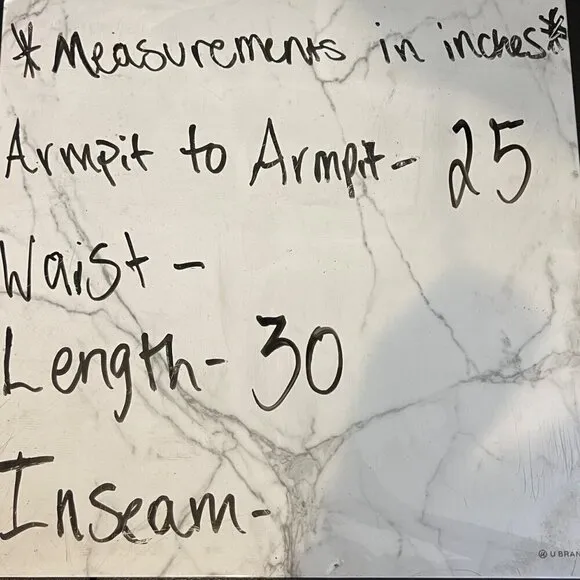 *Measurements in inches*
Armpit to Armpit- 25
Waist -
Length- 30
Inseam-
U BRAN